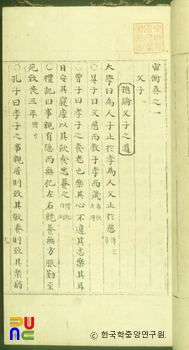 宙衡卷之一
父子一
總論父子之道
大學曰爲人子止於孝爲人父止於慈
○晏子曰父慈而敎子孝而箴
○曾子曰孝子之養老也樂其心不違其志樂其耳
目安其寢處以其飮食忠養之
○禮記曰事親有隱而無犯左右就養無方服勤至
死致喪三年
○孔子曰孝子之事親居則致其敬養則致其樂病
© 한국학중앙연구원